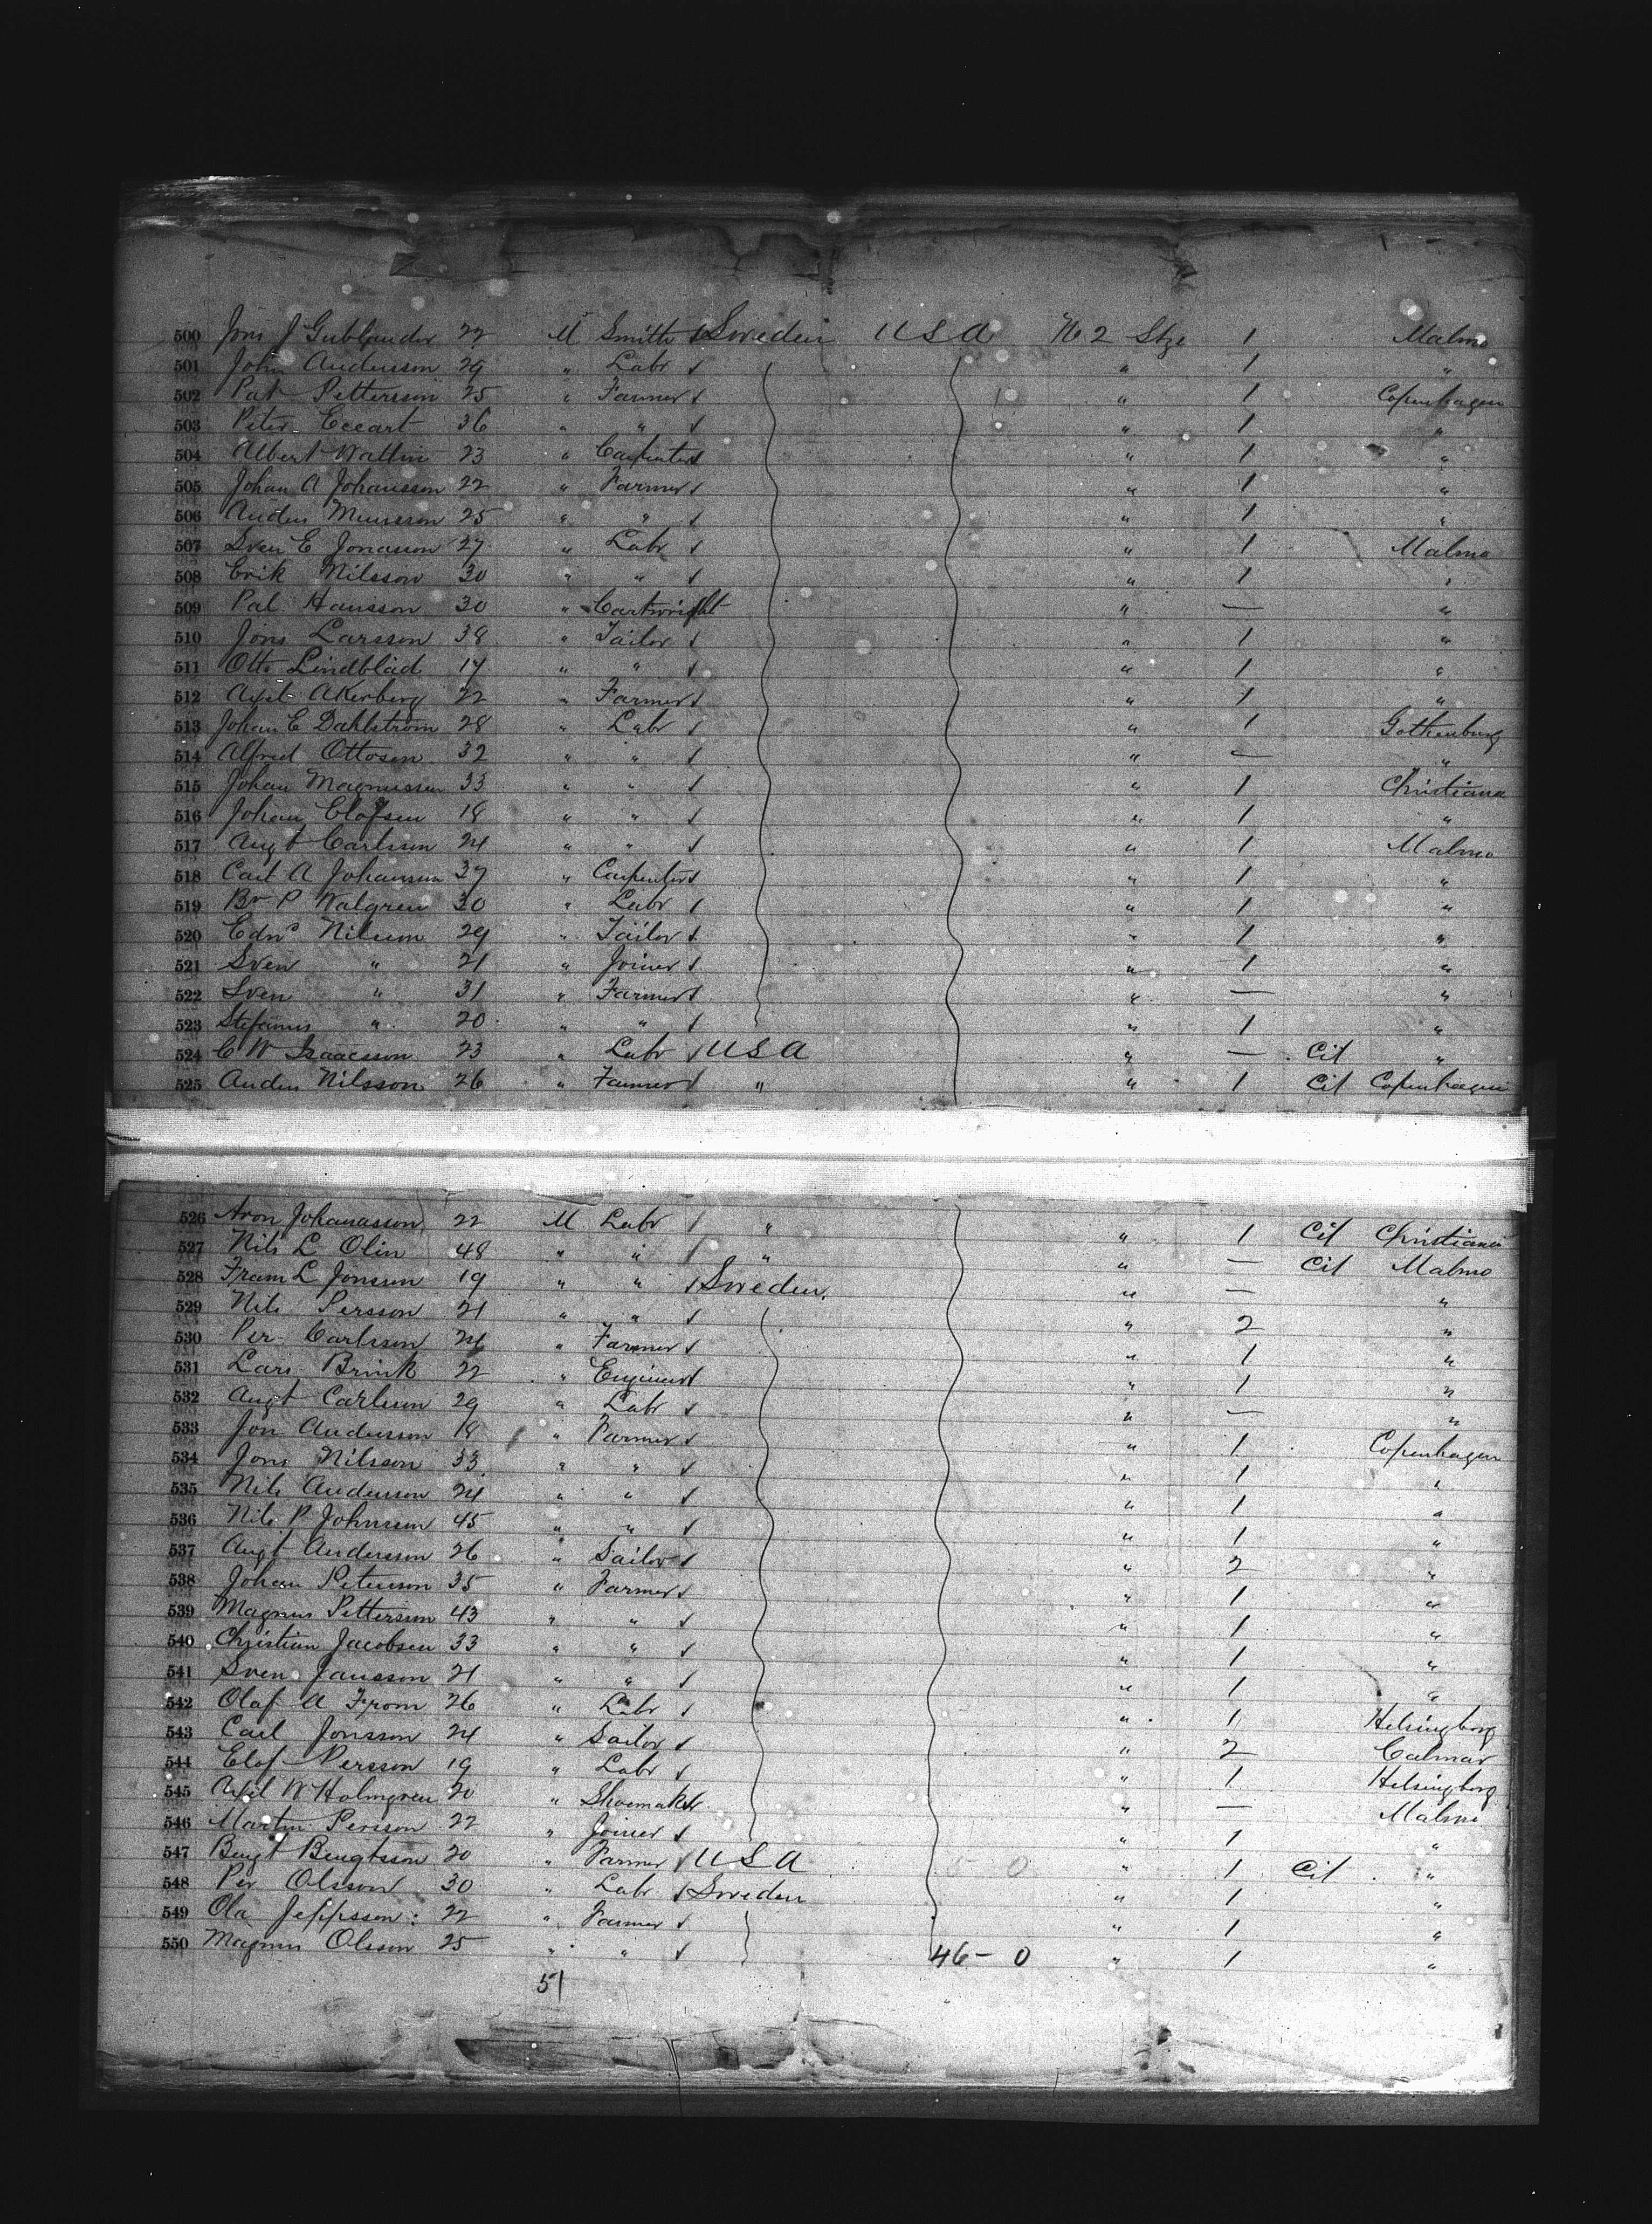 500 Jons J Gublander 22 M Smith Sweden USA No 2 Stge 1 Malmo
501 John Andersson 29 " Labr " 1 "
502 Pat Pettersson 25 " Farmer " 1 Copenhagen
503 Peter Eccart 36 " " " 1 "
504 Albert Wallin 23 " Carpenter " 1 "
505 Johan A Johansson 22 " Farmer " 1 "
506 Anders Munsson 25 " " " 1 "
507 Sven E Jonasson 27 " Labr " 1 Malmo
508 Erik Nilsson 30 " " " 1 "
509 Pal Hansson 30 " Cartwright " — "
510 Jons Larsson 38 " Tailor " 1 "
511 Otto Lindblad 17 " " " 1 "
512 Axel Akerberg 22 " Farmer " 1 "
513 Johan E Dahlstrom 28 " Labr " 1 Gothenburg
514 Alfred Ottosen 32 " " " — "
515 Johan Magnussen 33 " " " 1 Christiana
516 Johan Clofsen 18 " " " 1 "
517 Augt Carlsson 24 " " " 1 Malmo
518 Carl A Johansson 37 " Carpenter " 1 "
519 Br P Walgren 30 " Labr " 1 "
520 Ednd Nilsson 29 " Tailor " 1 "
521 Sven " 21 " Joiner " 1 "
522 Sven " 31 " Farmer " — "
523 Stefanus " 20 " " " 1 "
524 C W Isaacsson 23 " Labr USA " — Cit "
525 Anders Nilsson 26 " Farmer " " 1 Cit Copenhagen
526 Aron Johanasson 22 M Labr " " 1 Cit Christiana
527 Nils L Olin 48 " " " " — Cit Malmo
528 Fram L Jonsson 19 " " Sweden " — "
529 Nils Persson 21 " " " 2 "
530 Per Carlsson 24 " Farmer " 1 "
531 Lars Brink 22 " Engineer " 1 "
532 Augt Carlsson 29 " Labr " — "
533 Jon Andersson 18 " Farmer " 1 Copenhagen
534 Jons Nilsson 33 " " " 1 "
535 Nils Andersson 24 " " " 1 "
536 Nils P Johnsson 45 " " " 1 "
537 Augt Andersson 26 " Sailor " 2 "
538 Johan Petersson 35 " Farmer " 1 "
539 Magnus Pettersson 43 " " " 1 "
540 Christian Jacobsen 33 " " " 1 "
541 Sven Jansson 21 " " " 1 "
542 Olaf A From 26 " Labr " 1 Helsingborg
543 Carl Jonsson 24 " Sailor " 2 Calmar
544 Elof Persson 19 " Labr " 1 Helsingborg
545 Axel W Holmgren 20 " Shoemaker " — Malmo
546 Martin Persson 22 " Joiner " 1 "
547 Bengt Bengtsson 20 " Farmer USA " 1 Cit "
548 Per Olsson 30 " Labr Sweden " 1 "
549 Ola Jeppsson 22 " Farmer " 1 "
550 Magnus Olsson 25 " " 46 - 0 " 1 "
51